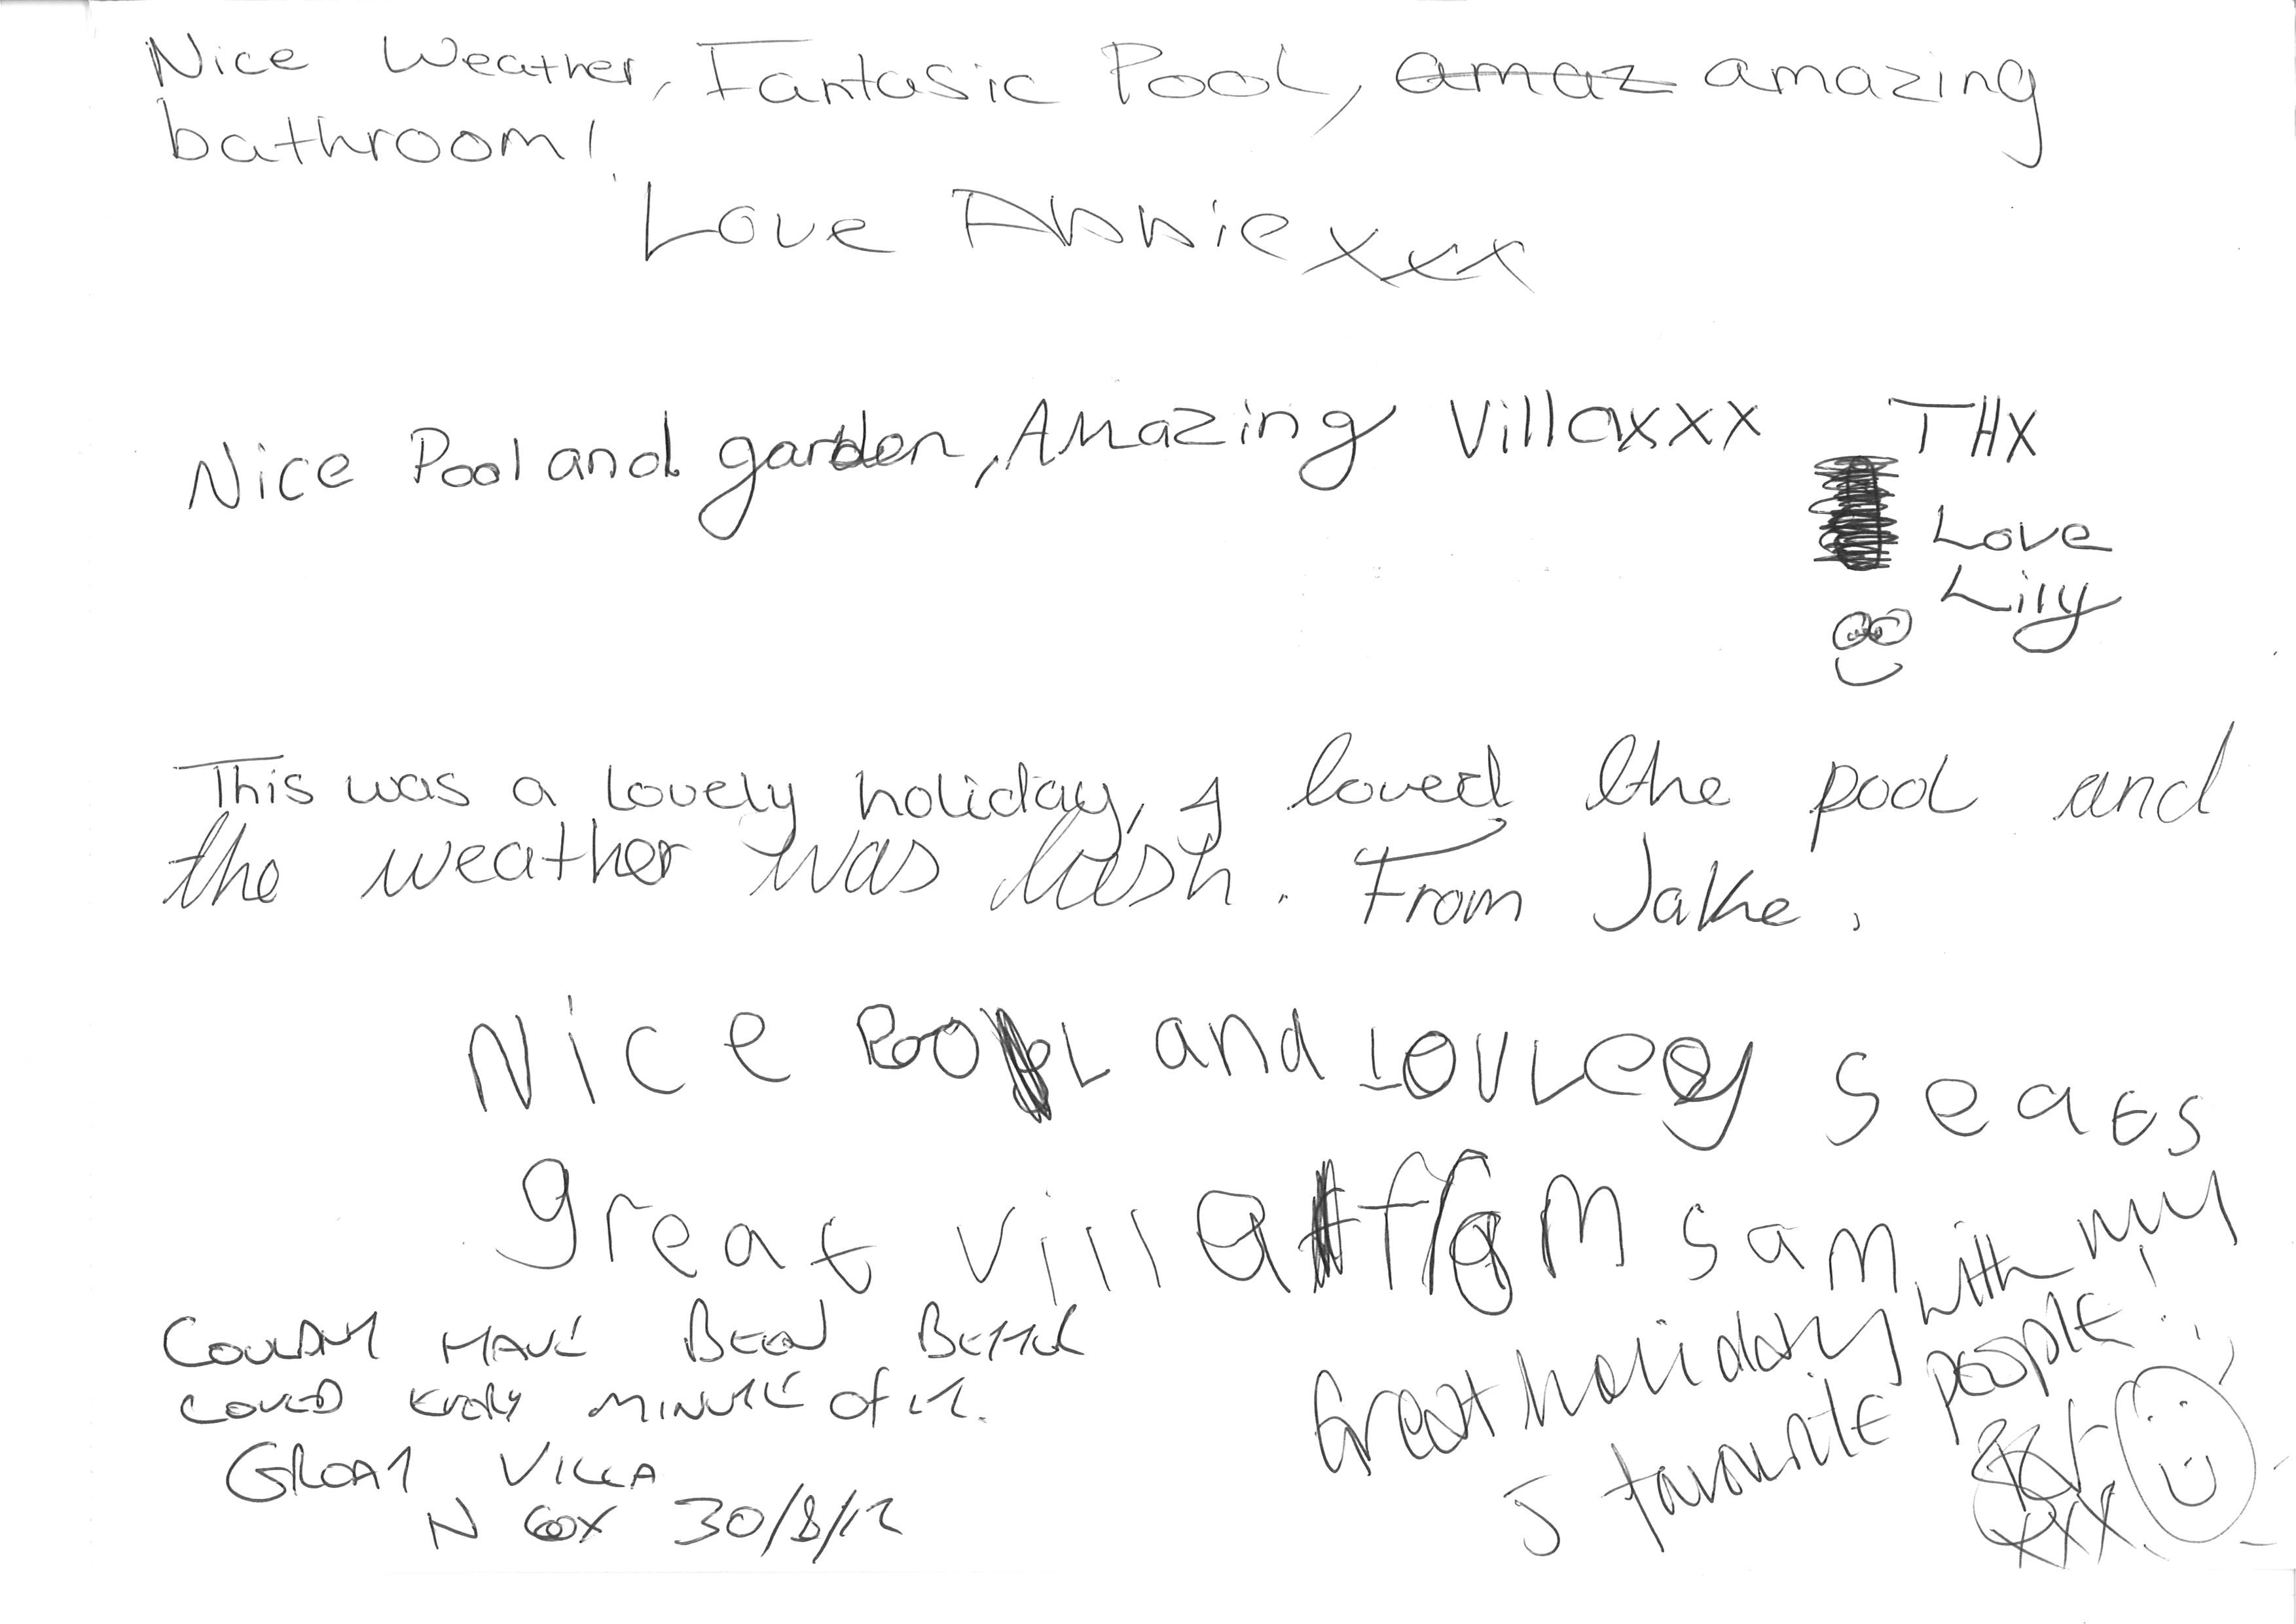 Nice Weather, Fantasic Pool, amaz amazing
bathroom!
Love Annie xxx
Nice Pool and garden, Amazing Villa xxx THX
Love
Lilly
This was a lovely holiday, I loved the pool and
the weather was lush. From Jake.
Nice Pool and lovley seats
great villa from sam
COULDNT HAVE BEEN BETTER
LOVED EVERY MINUTE OF IT.
GREAT VILLA
N COX 30/8/12
Great holiday with my
5 favourite people!
xxx